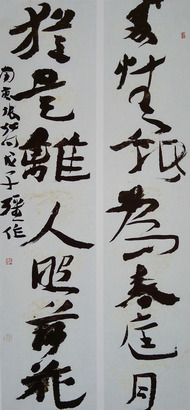 多情祇為春庭月
猶是離人照落花
南唐張 戊子 作